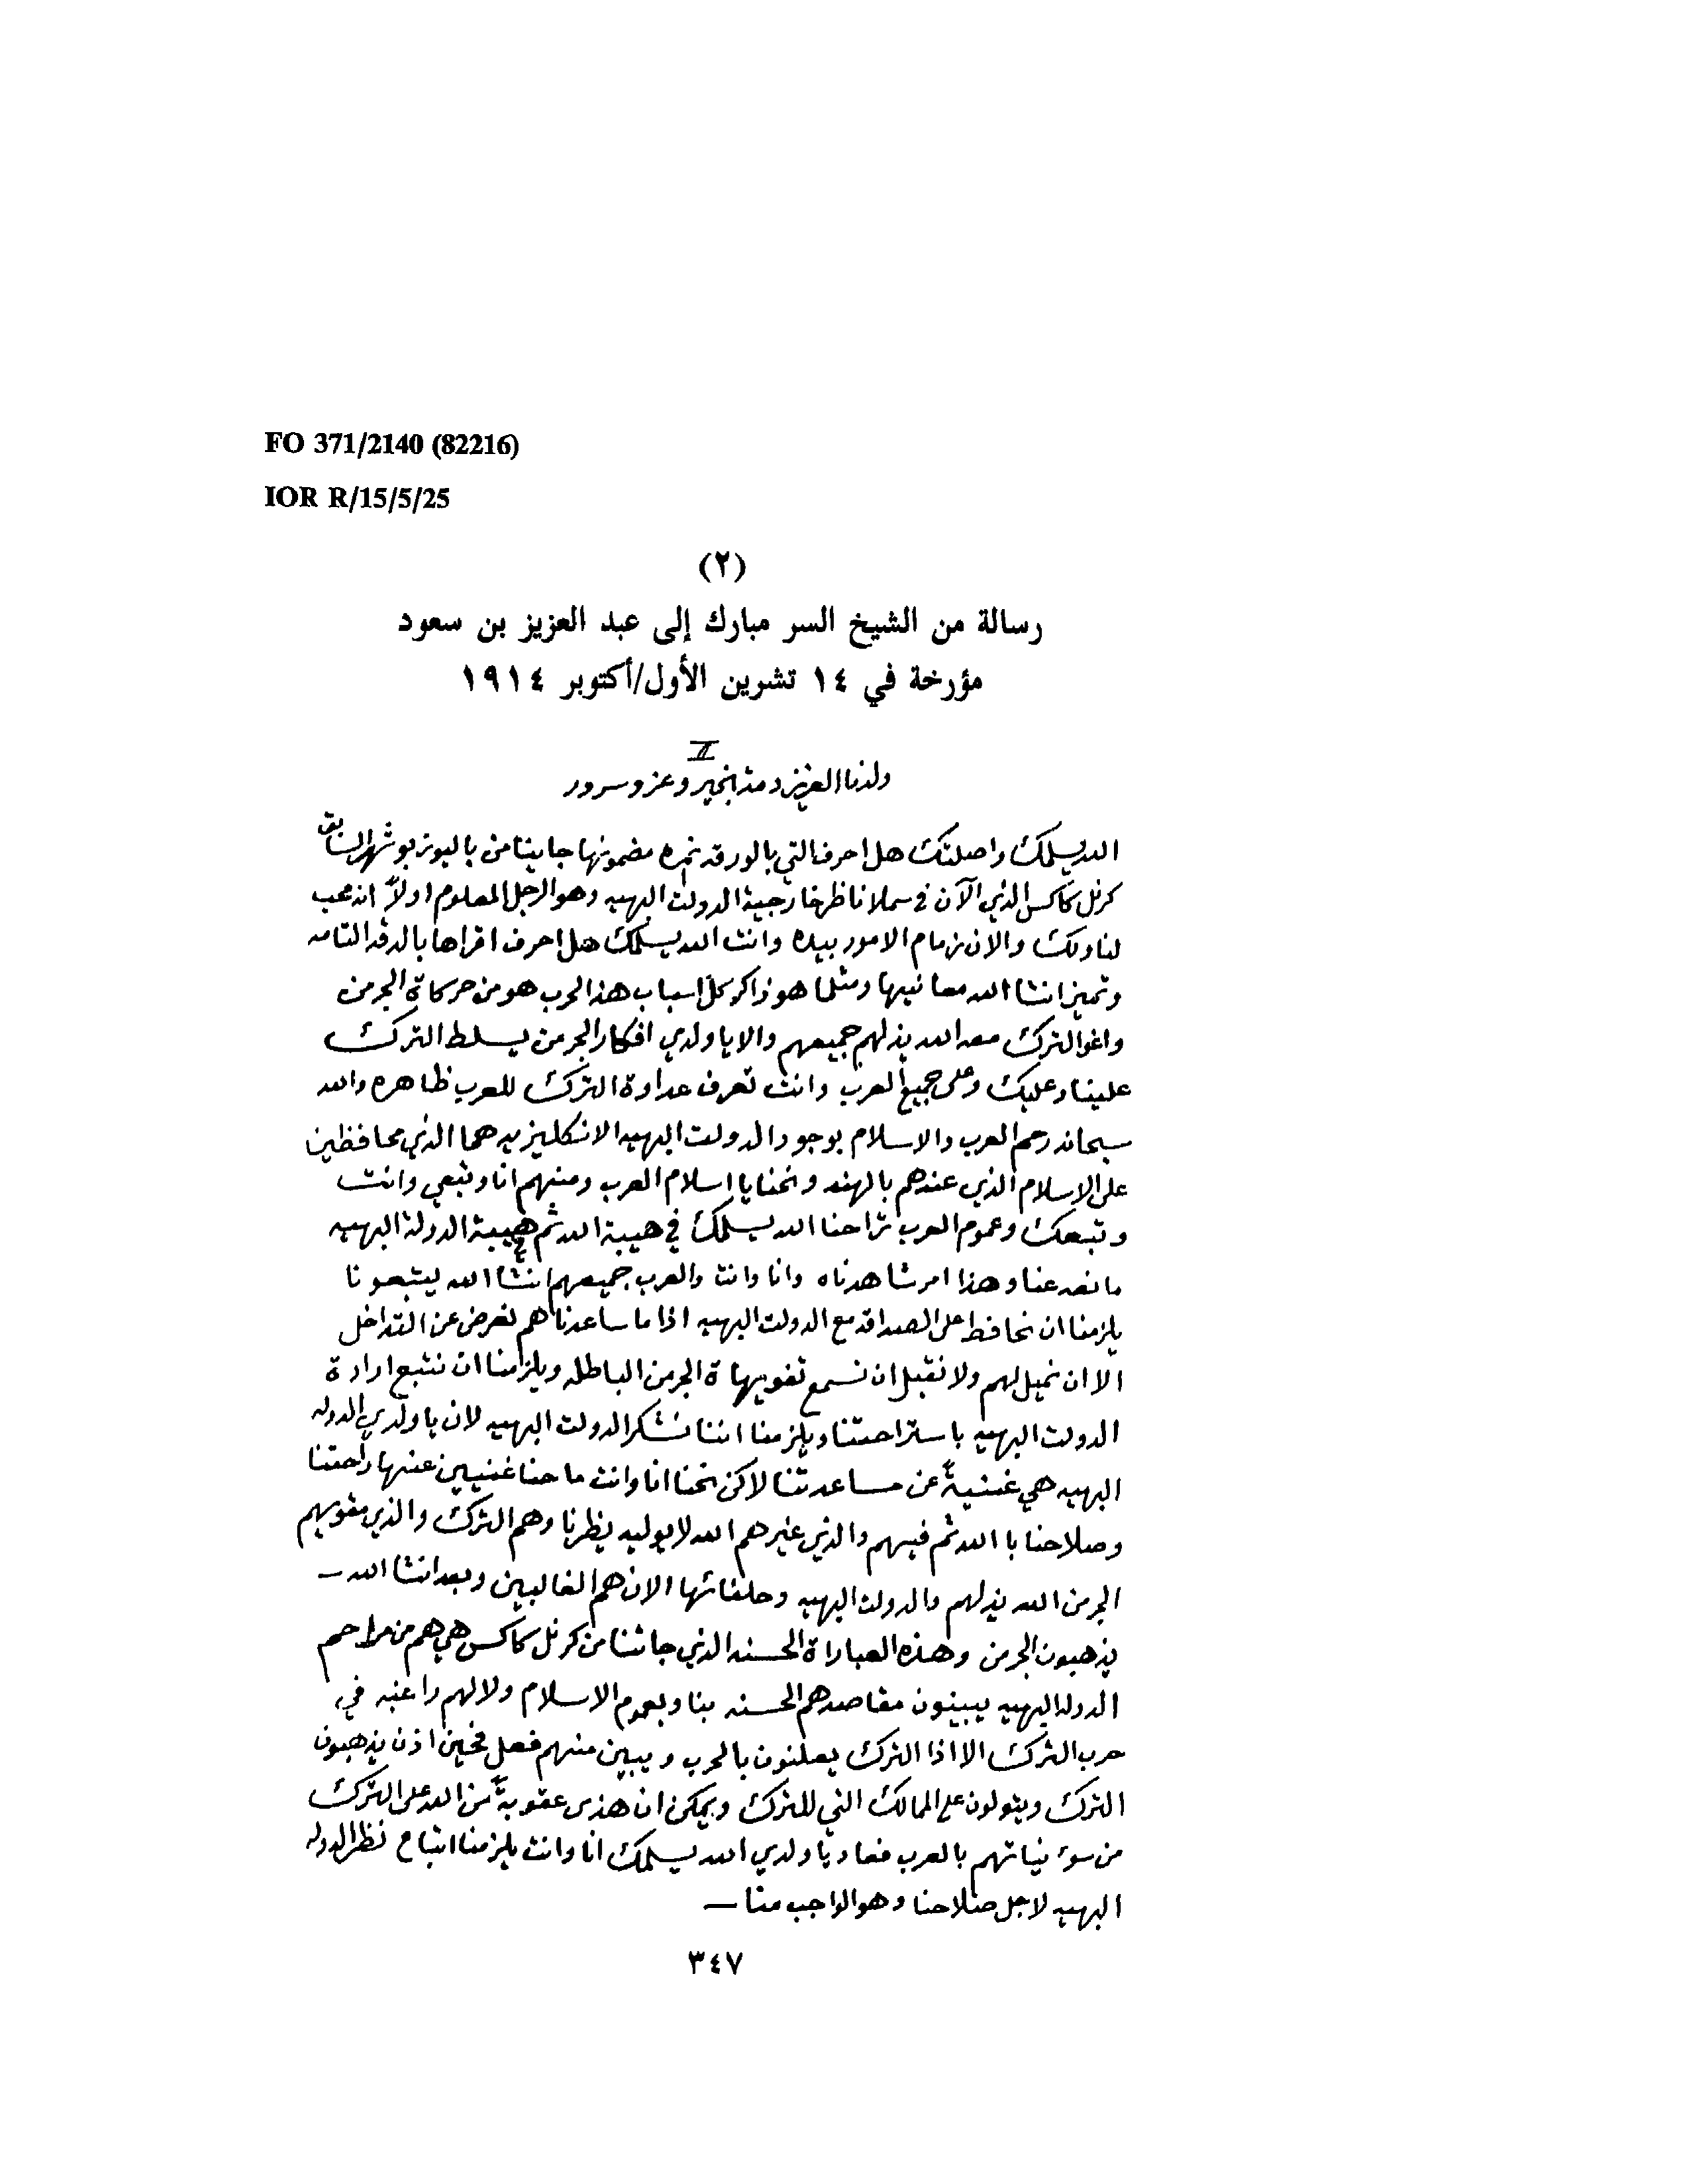 FO 371/2140 (82216)
IOR R/15/5/25
(٢)
رسالة من الشيخ السر مبارك إلى عبد العزيز بن سعود
مؤرخة في ١٤ تشرين الأول/أكتوبر ١٩١٤
II
ولدنا العزيز دمت بخير وعز وسرور
الله يسلمك واصلتك هل احرف التي بالورقه نمره مضمونها جا بينا من باليوز بوشهر السابق
كرنل كاكس الذي الآن في سملا ناظر خارجية الدولت البهيه وهو الرجل المعلوم اولاً انه محب
لنا ولك والان زمام الامور بيده وانت الله يسلمك هل احرف اقراها بالدقه التامه
وتميز انشا الله معانيها ومثلما هو ذاكر كل اسباب هذا الحرب هو من حركاة الجرمن
واغوا الترك معه الله يذلهم جميعهم والا يا ولدي افكار الجرمن يسلط الترك
علينا وعليك وعلى جميع العرب وانت تعرف عداوة الترك للعرب ظاهره والله
سبحانه رحم العرب والاسلام بوجود الدولت البهيه الانكليزيه هما الذي محافظين
على الاسلام الذي عندهم بالهند ونحنا يا اسلام العرب ومنهم انا وتبعي وانت
وتبعك وعموم العرب تراحنا الله يسلمك في هيبة الله ثم هيبة الدولة البهيه
مانعه عنا وهذا امر شاهدناه وانا وانت والعرب جميعهم انشا الله يتبعونا
يلزمنا ان نحافظ على الصداقه مع الدولت البهيه اذا ما ساعدناهم نعرض عن التداخل
الا ان نميل لهم ولا نقبل ان نسمع تفويهاة الجرمن الباطله ويلزمنا ان نتبع ارادة
الدولت البهيه باستراحتنا ويلزمنا اننا نشكر الدولت البهيه لان يا ولدي الدوله
البهيه هي غنيةً عن مساعدتنا لاكن نحنا انا وانت ما حنا غنيين عنها راحتنا
وصلاحنا با الله ثم فيهم والذي غيرهم الله لا يوليه نظرنا وهم الترك والذي مقويهم
الجرمن الله يذلهم والدولت البهيه وحلفائها الان هم الغالبين وبعد انشا الله —
يذهبون الجرمن وهذه العباراة الحسنه الذي جاتنا من كرنل كاكس هي هم من مراحم
الدوله البهيه يبينون مقاصدهم الحسنه بنا وبعموم الاسلام ولا لهم راغبه في
حرب الترك الا اذا الترك يعلنون بالحرب ويبين منهم فعل فحين اذن يذهبون
الترك ويتولون على الممالك التي للترك ويمكن ان هذى عقوبةً من الله على الترك
من سوء نياتهم بالعرب فعاد يا ولدي الله يسلمك انا وانت يلزمنا اتباع نظر الدوله
البهيه لاجل صلاحنا وهو الواجب منا —
٣٤٧